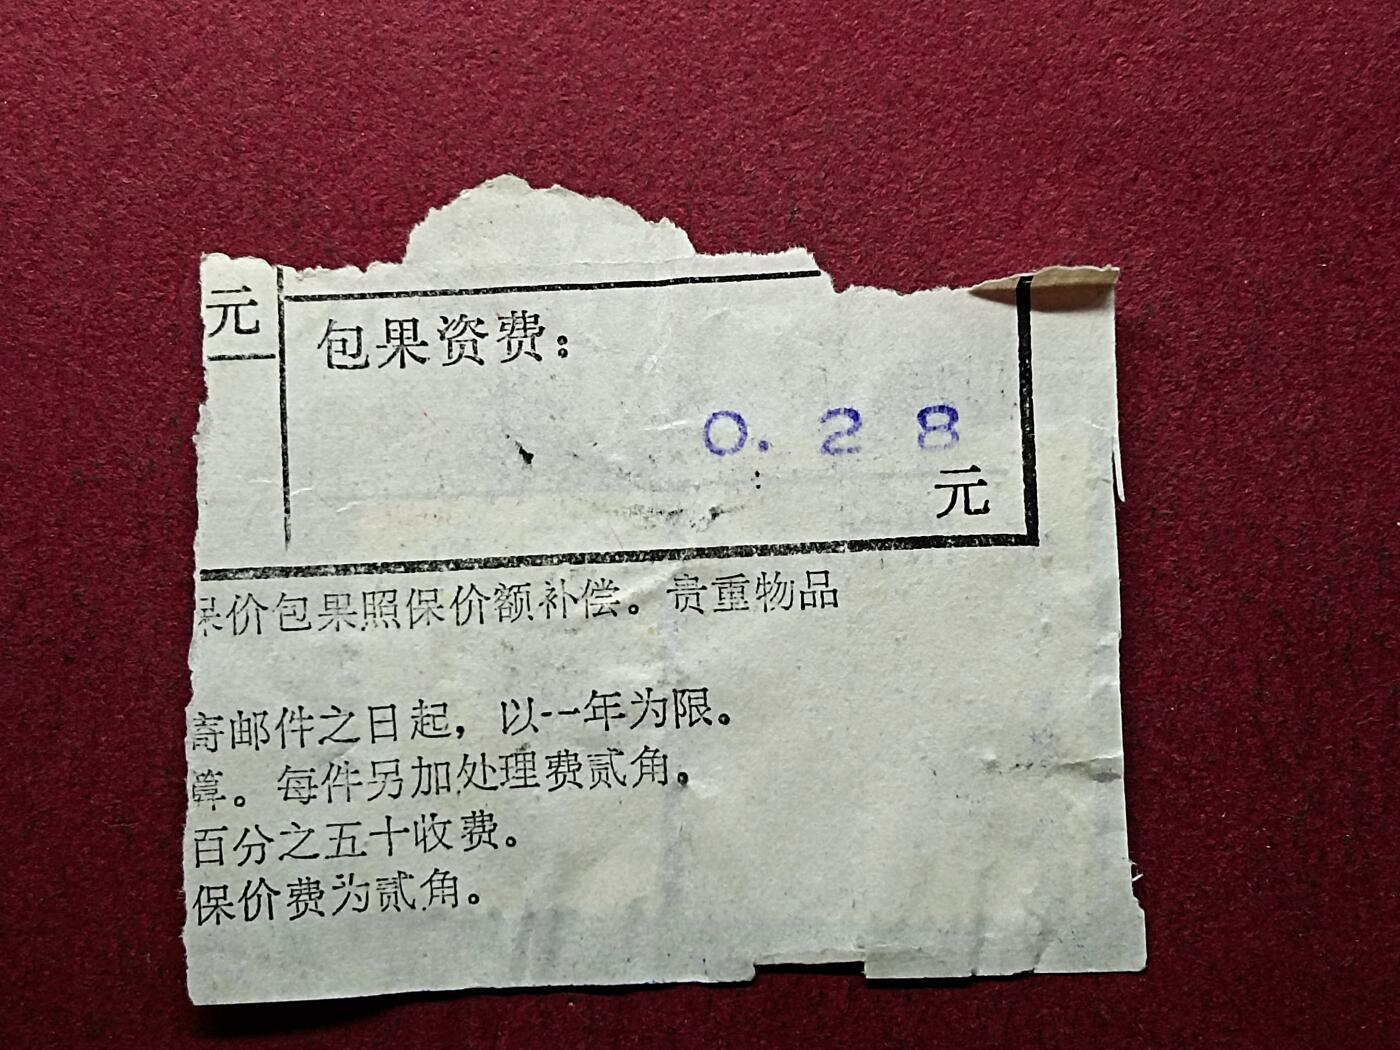 元
包果资费：
0. 28
元
保价包果照保价额补偿。贵重物品
寄邮件之日起，以一年为限。
算。每件另加处理费贰角。
百分之五十收费。
保价费为贰角。